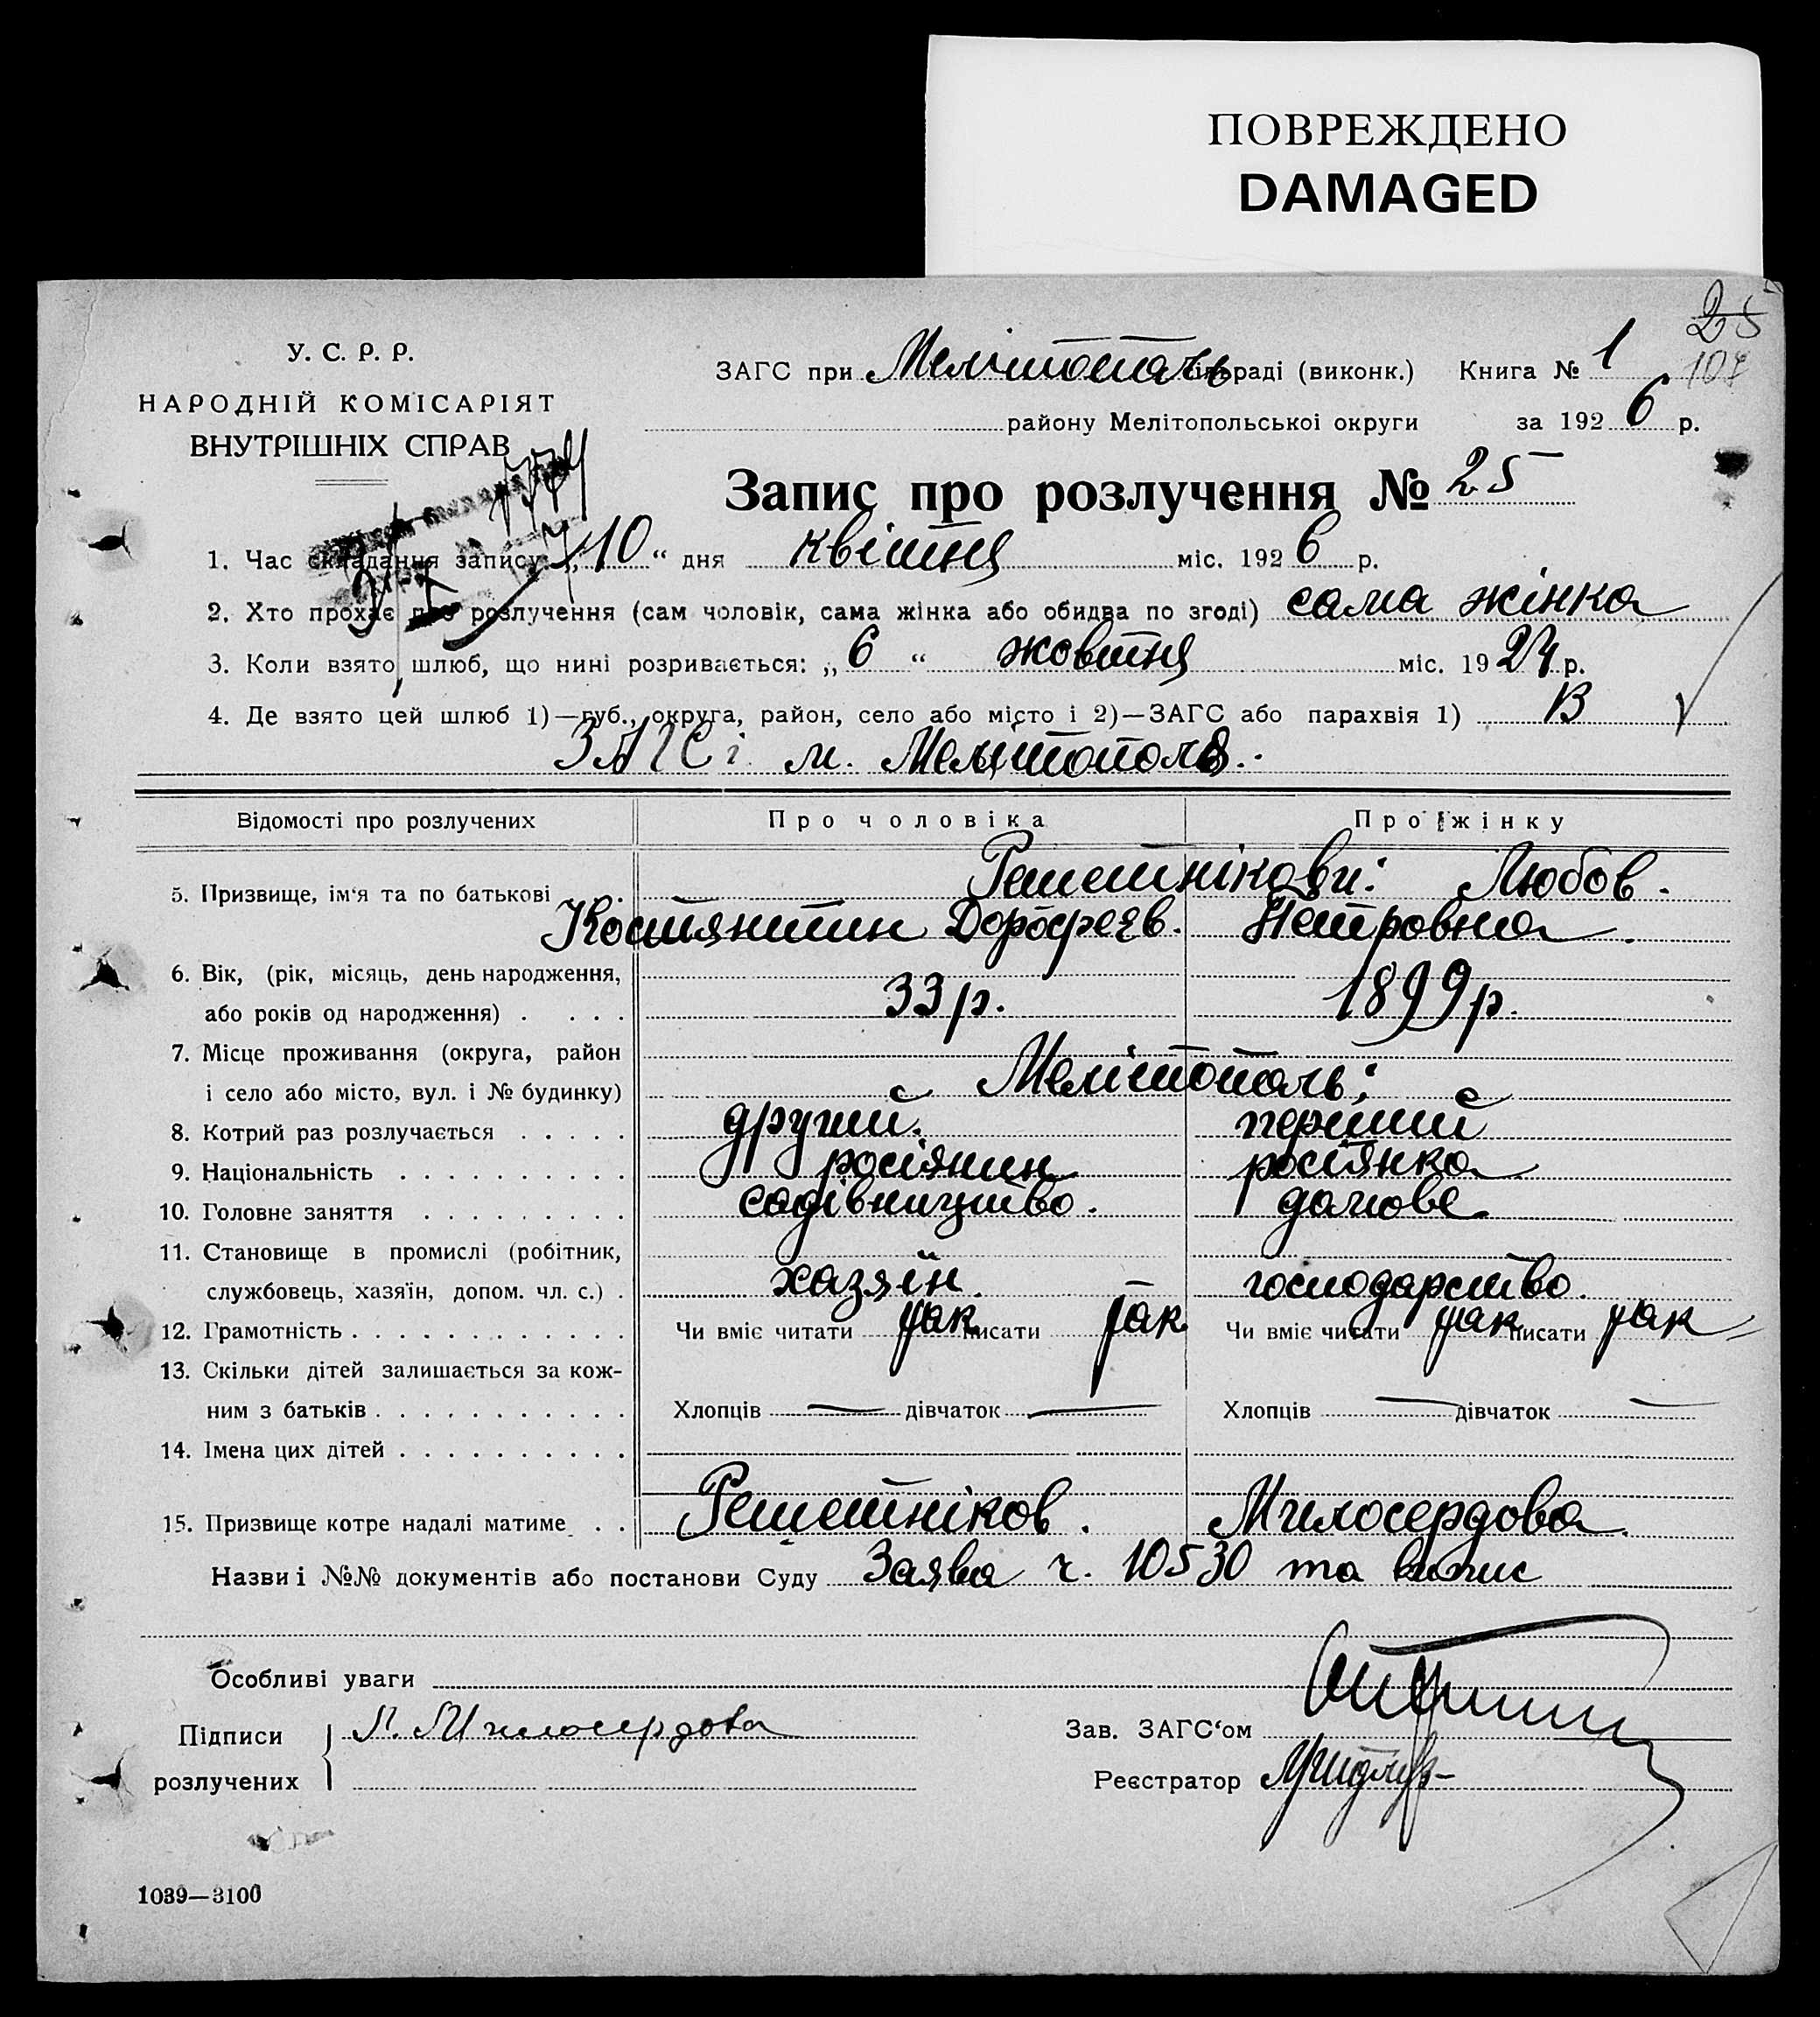 ПОВРЕЖДЕНО
DAMAGED
25
107
У. С. Р. Р.
НАРОДНІЙ КОМІСАРІЯТ
ВНУТРІШНІХ СПРАВ
ЗАГС при Мелітополь сільраді (виконк.) Книга № 1
району Мелітопольської округи за 1926 р.
Запис про розлучення № 25
1. Час складання запису: „10“ дня квітня міс. 1926 р.
2. Хто прохає про розлучення (сам чоловік, сама жінка або обидва по згоді) сама жінка
3. Коли взято шлюб, що нині розривається: „6“ жовтня міс. 1924 р.
4. Де взято цей шлюб 1)—губ., округа, район, село або місто і 2)—ЗАГС або парахвія 1) В
ЗАГСі м. Мелітополя.
Відомості про розлучених Про чоловіка Про жінку
5. Призвище, ім'я та по батькові Решетнікови: Любов.
Костянтин Дорофеєв. Петровна.
6. Вік, (рік, місяць, день народження,
або років од народження) . . . . 33 р. 1899 р.
7. Місце проживання (округа, район
і село або місто, вул. і № будинку) Мелітополь;
8. Котрий раз розлучається . . . . . другий. перший
9. Національність . . . . . . . . . . росіянин росіянка
10. Головне заняття . . . . . . . . . садівництво. домове
11. Становище в промислі (робітник,
службовець, хазяїн, допом. чл. с.) . хазяїн. господарство.
12. Грамотність . . . . . . . . . . . . Чи вміє читати так писати так Чи вміє читати так писати так
13. Скільки дітей залишається за кож-
ним з батьків . . . . . . . . . . . Хлопців — дівчаток — Хлопців — дівчаток —
14. Імена цих дітей . . . . . . . . . .
15. Призвище котре надалі матиме . . Решетніков. Милосердова.
Назви і №№ документів або постанови Суду Заява ч. 10530 та випис
Особливі уваги
Підписи Л. Милосердова Зав. ЗАГС‘ом
розлучених Реєстратор
1039—3100